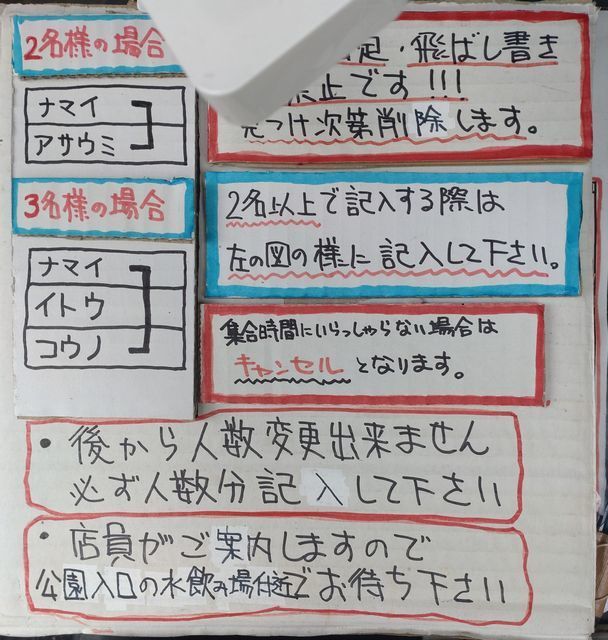 2名様の場合
ナマイ
アサウミ
3名様の場合
ナマイ
イトウ
コウノ
足・飛ばし書き
禁止です!!!
見つけ次第削除します。
2名以上で記入する際は
左の図の様に記入して下さい。
集合時間にいらっしゃらない場合は
キャンセルとなります。
・後から人数変更出来ません
必ず人数分記入して下さい
・店員がご案内しますので
公園入口の水飲み場付近でお待ち下さい